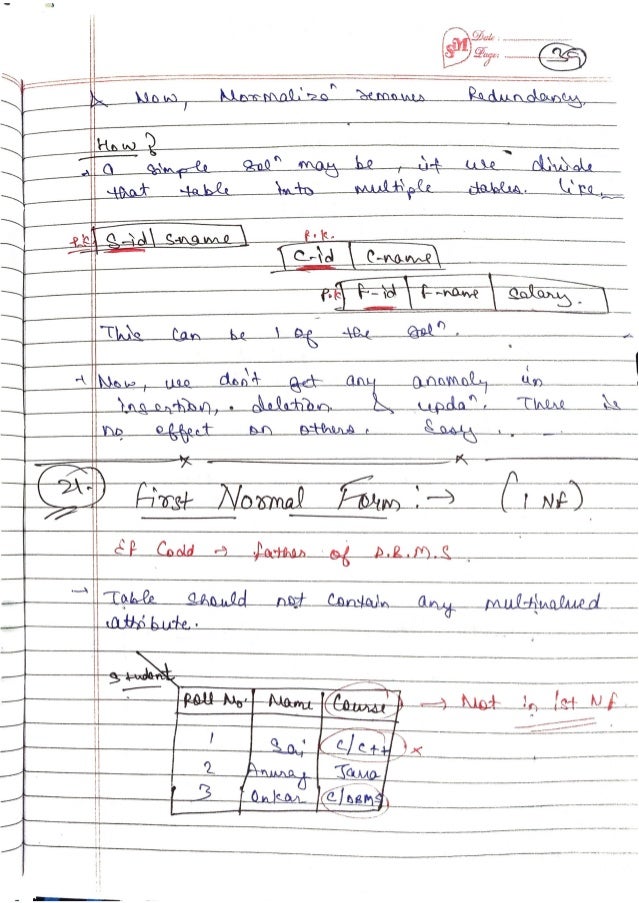 SM Date:
Page: 39
& Now, Normalizoⁿ removes Redundancy.
How?
→ A simple solⁿ may be, if we divide
that table into multiple tables. like,
P.K. S-id | S-name
P.K.
C-id | C-name
P.K. F-id | F-name | Salary.
This can be 1 of the solⁿ.
→ Now, we don't get any anomoly in
insertion, deletion & updaⁿ. There is
no effect on others. Easy ....
21. First Normal Form :→ (1 NF)
Ef Codd → father of D.B.M.S.
→ Table should not contain any multivalued
attribute.
Student
Roll No. | Name | Course → Not in 1st NF
1 | Sai | C/C++ x
2 | Anurag | Java
3 | Onkar | C/DBMS